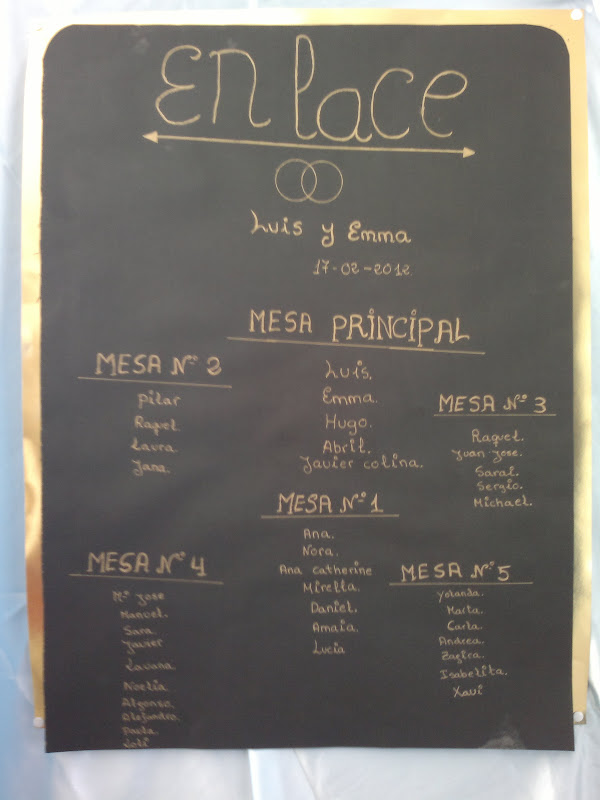 Enlace
Luis y Emma
17-02-2012
MESA PRINCIPAL
Luis.
Emma.
Hugo.
Abril.
Javier colina.
MESA Nº 2
Pilar
Raquel
Laura
Jana.
MESA Nº 3
Raquel.
Juan-Jose.
Sarai.
Sergio.
Michael.
MESA Nº 1
Ana.
Nora.
Ana catherine
Mirella.
Daniel.
Amaia.
Lucia
MESA Nº 4
Mª Jose
Manuel.
Sara.
Javier
Noelia
Alejandro.
Paula.
Loli
MESA Nº 5
Yolanda.
Marta.
Carla.
Andrea.
Isabelita.
Xavi